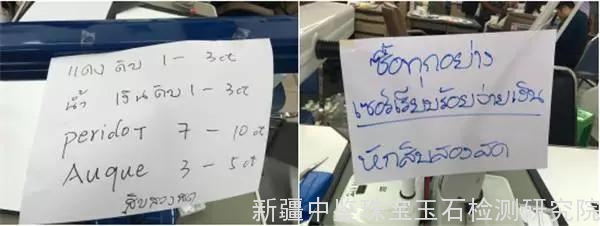 แดง ดิบ 1 - 3ct
น้ำ เงินดิบ 1 - 3ct
peridoT 7 - 10 ct
Auque 3 - 5 ct
สิบสองสด
ซื้อทุกอย่าง
เซอร์เรียบร้อยจ่ายเงิน
หักสิบสองสด
新疆中 珠宝玉石检测研究院